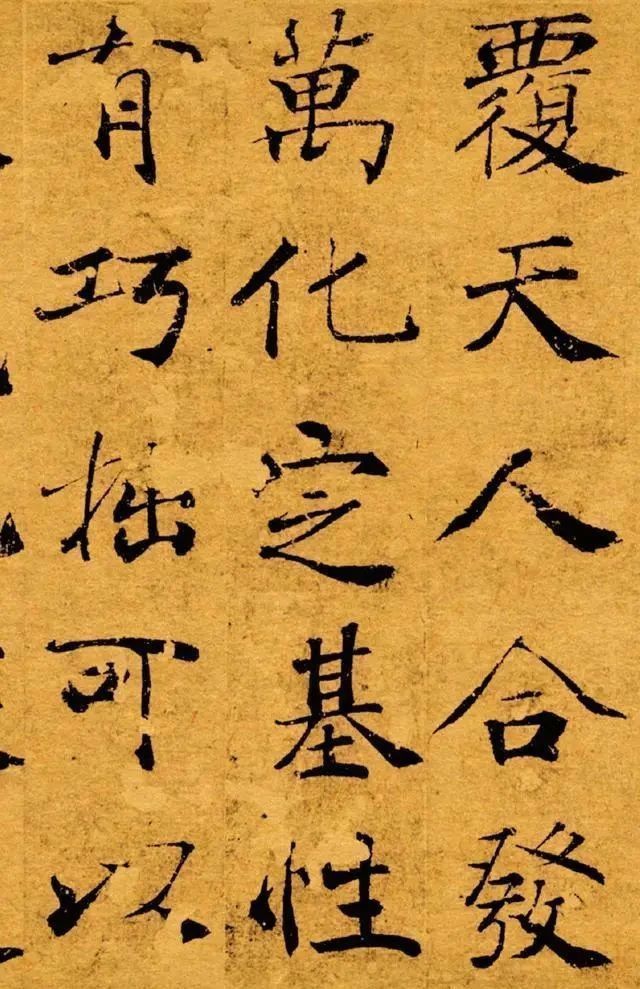 覆天人合發
萬化定基性
有巧拙可以